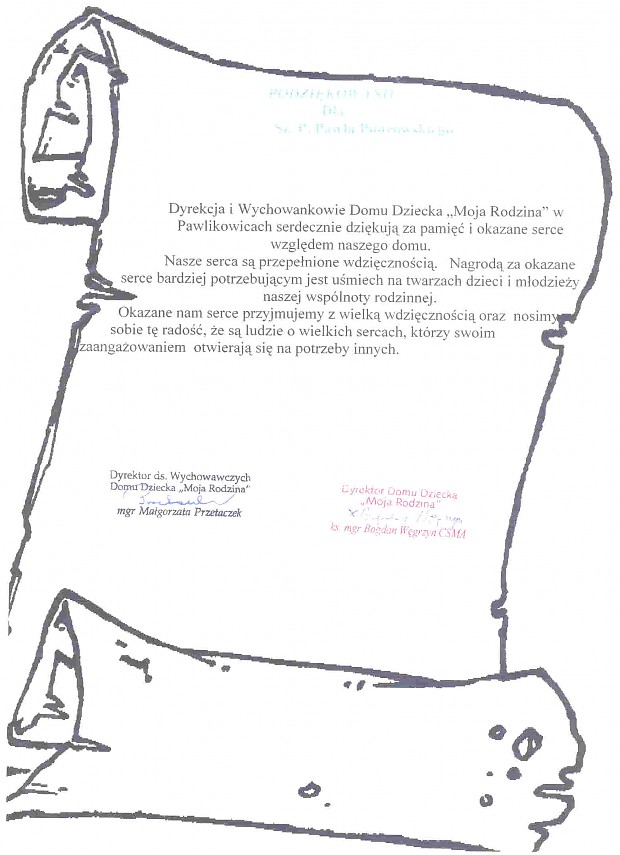 PODZIĘKOWANIE
Dla
Sz. P. Pawła Piotrowskiego
Dyrekcja i Wychowankowie Domu Dziecka „Moja Rodzina” w
Pawlikowicach serdecznie dziękują za pamięć i okazane serce
względem naszego domu.
Nasze serca są przepełnione wdzięcznością. Nagrodą za okazane
serce bardziej potrzebującym jest uśmiech na twarzach dzieci i młodzieży
naszej wspólnoty rodzinnej.
Okazane nam serce przyjmujemy z wielką wdzięcznością oraz nosimy
sobie tę radość, że są ludzie o wielkich sercach, którzy swoim
zaangażowaniem otwierają się na potrzeby innych.
Dyrektor ds. Wychowawczych
Domu Dziecka „Moja Rodzina”
mgr Małgorzata Przetaczek
Dyrektor Domu Dziecka
„Moja Rodzina”
ks. mgr Bogdan Węgrzyn CSMA